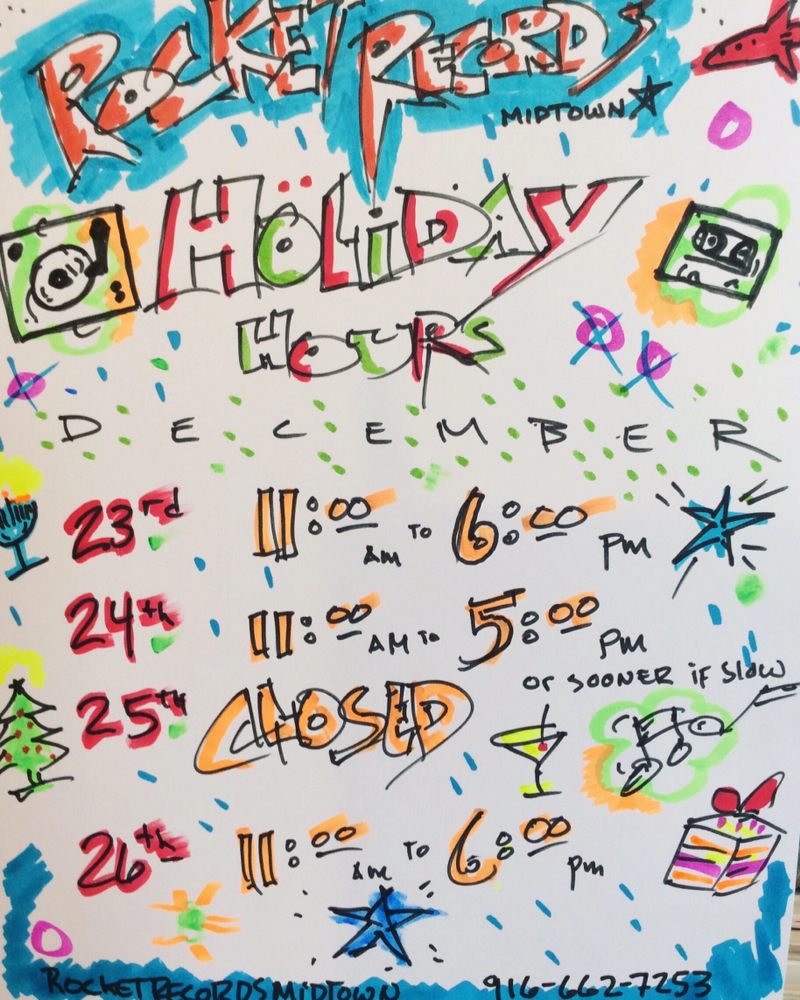 ROCKET RECORDS
MIDTOWN
HOLIDAY
HOURS
DECEMBER
23rd 11:00 AM TO 6:00 PM
24th 11:00 AM TO 5:00 PM
or SOONER iF SLOW
25th CLOSED
26th 11:00 AM TO 6:00 pm
ROCKETRECORDSMIDTOWN 916-662-7253